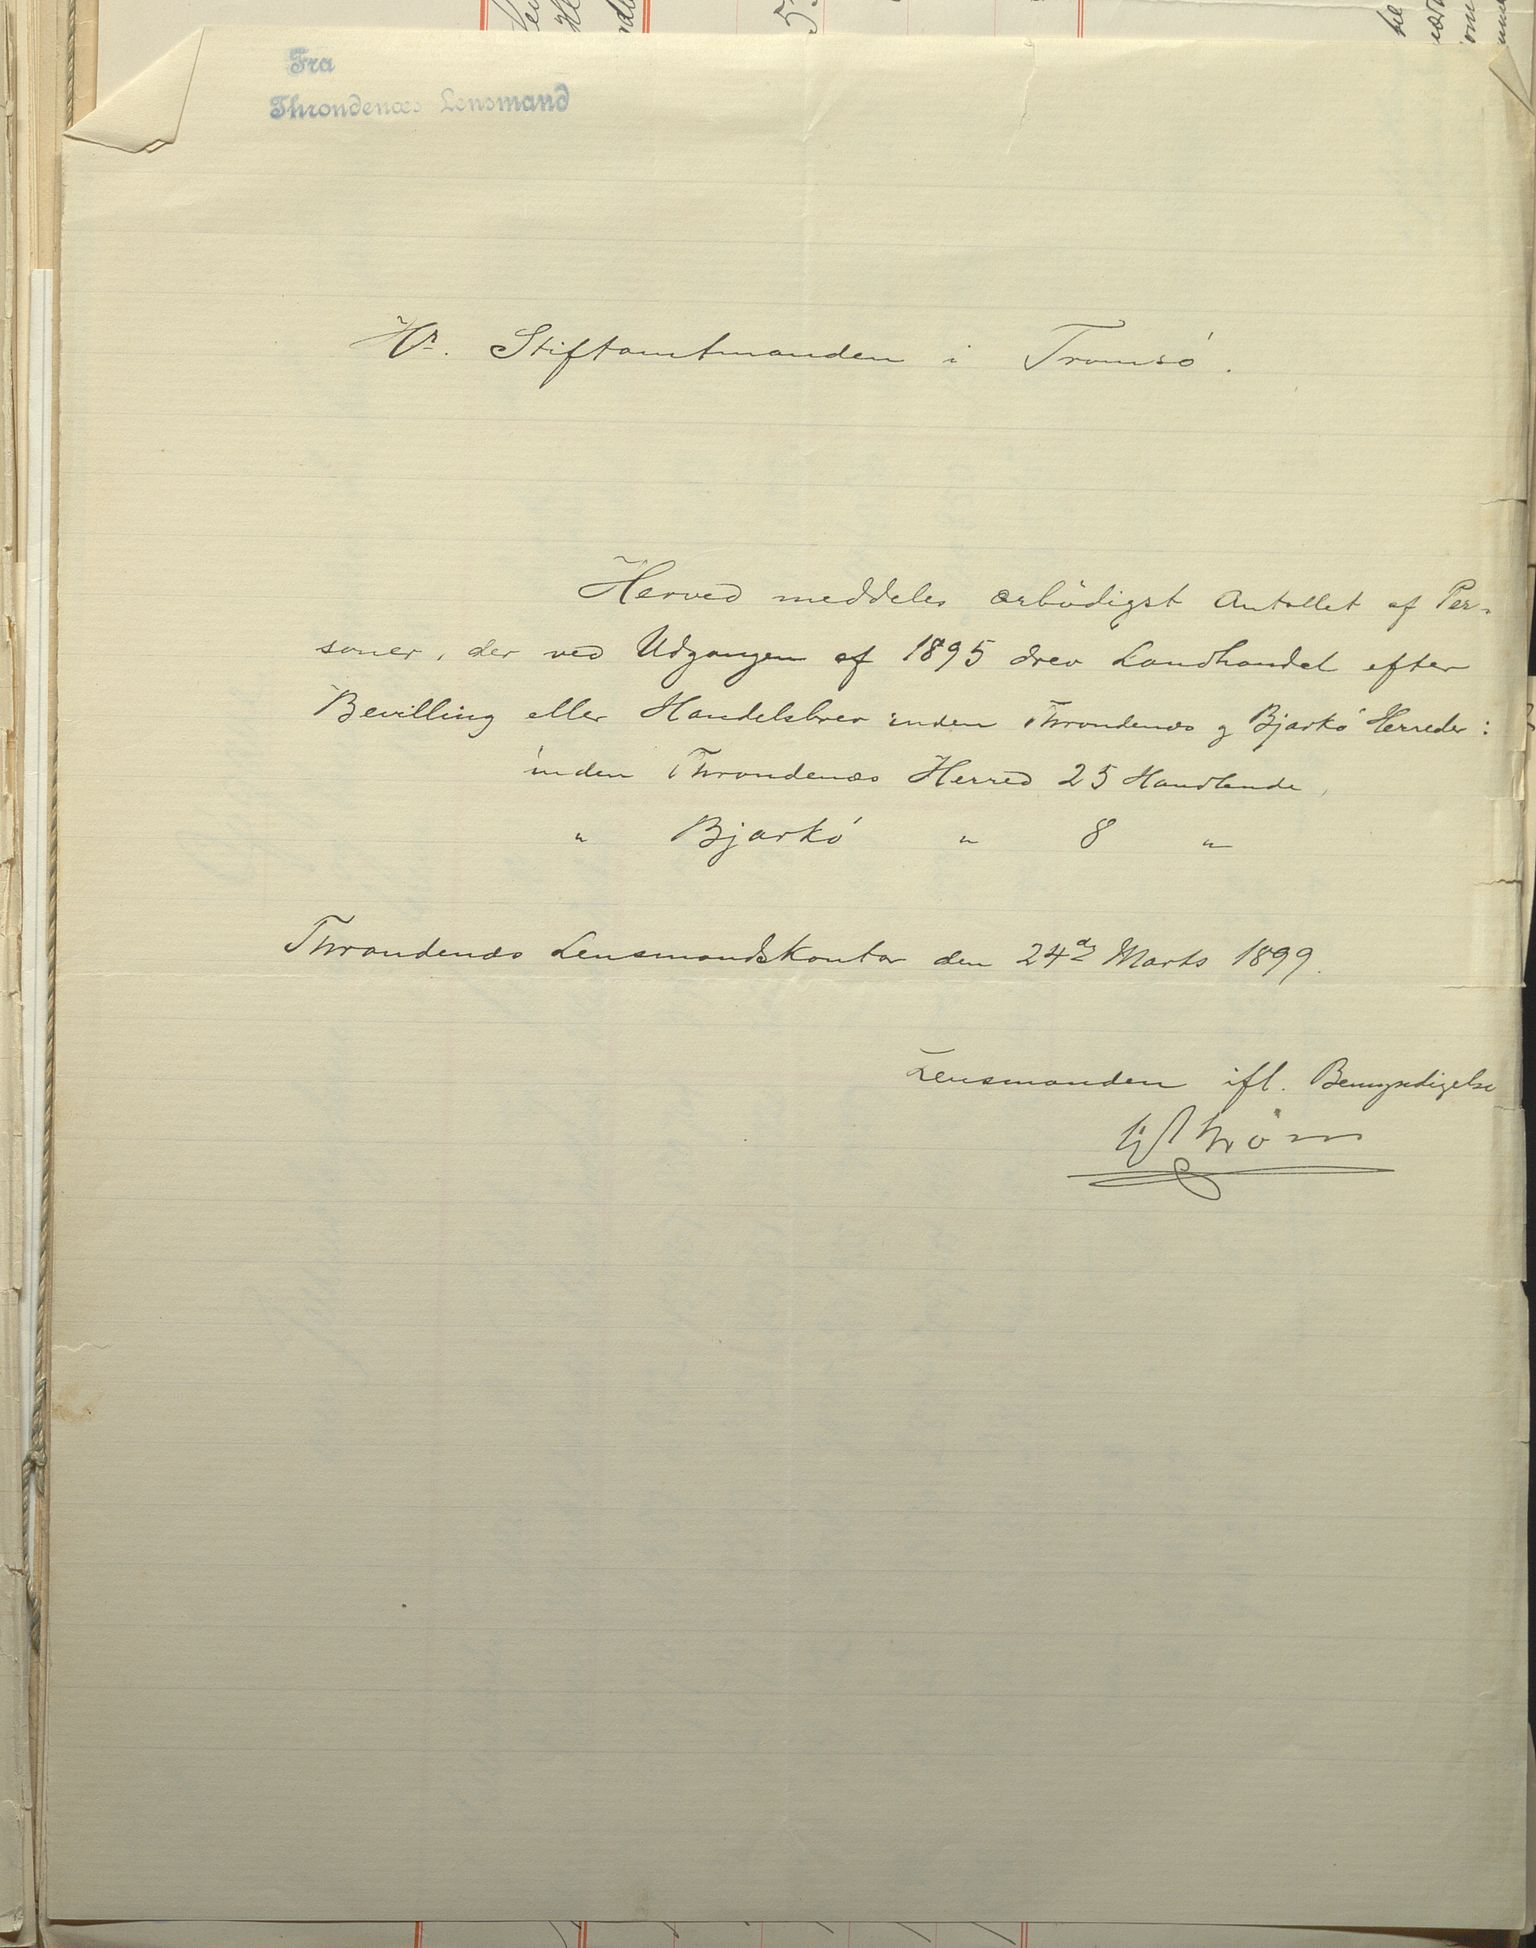 Fra
Throndenæs Lensmand
Hr. Stiftamtmanden i Tromsö.
Herved meddeles ærbödigst Antallet af Per-
soner, der ved Udgangen af 1895 drev Landhandel efter
Bevilling eller Handelsbrev inden Throndenæs og Bjarkö Herreder:
inden Throndenæs Herred 25 Handlende,
" Bjarkö " 8 "
Throndenæs Lensmandskontor den 24de Marts 1899.
Lensmanden ifl. Bemyndigelse